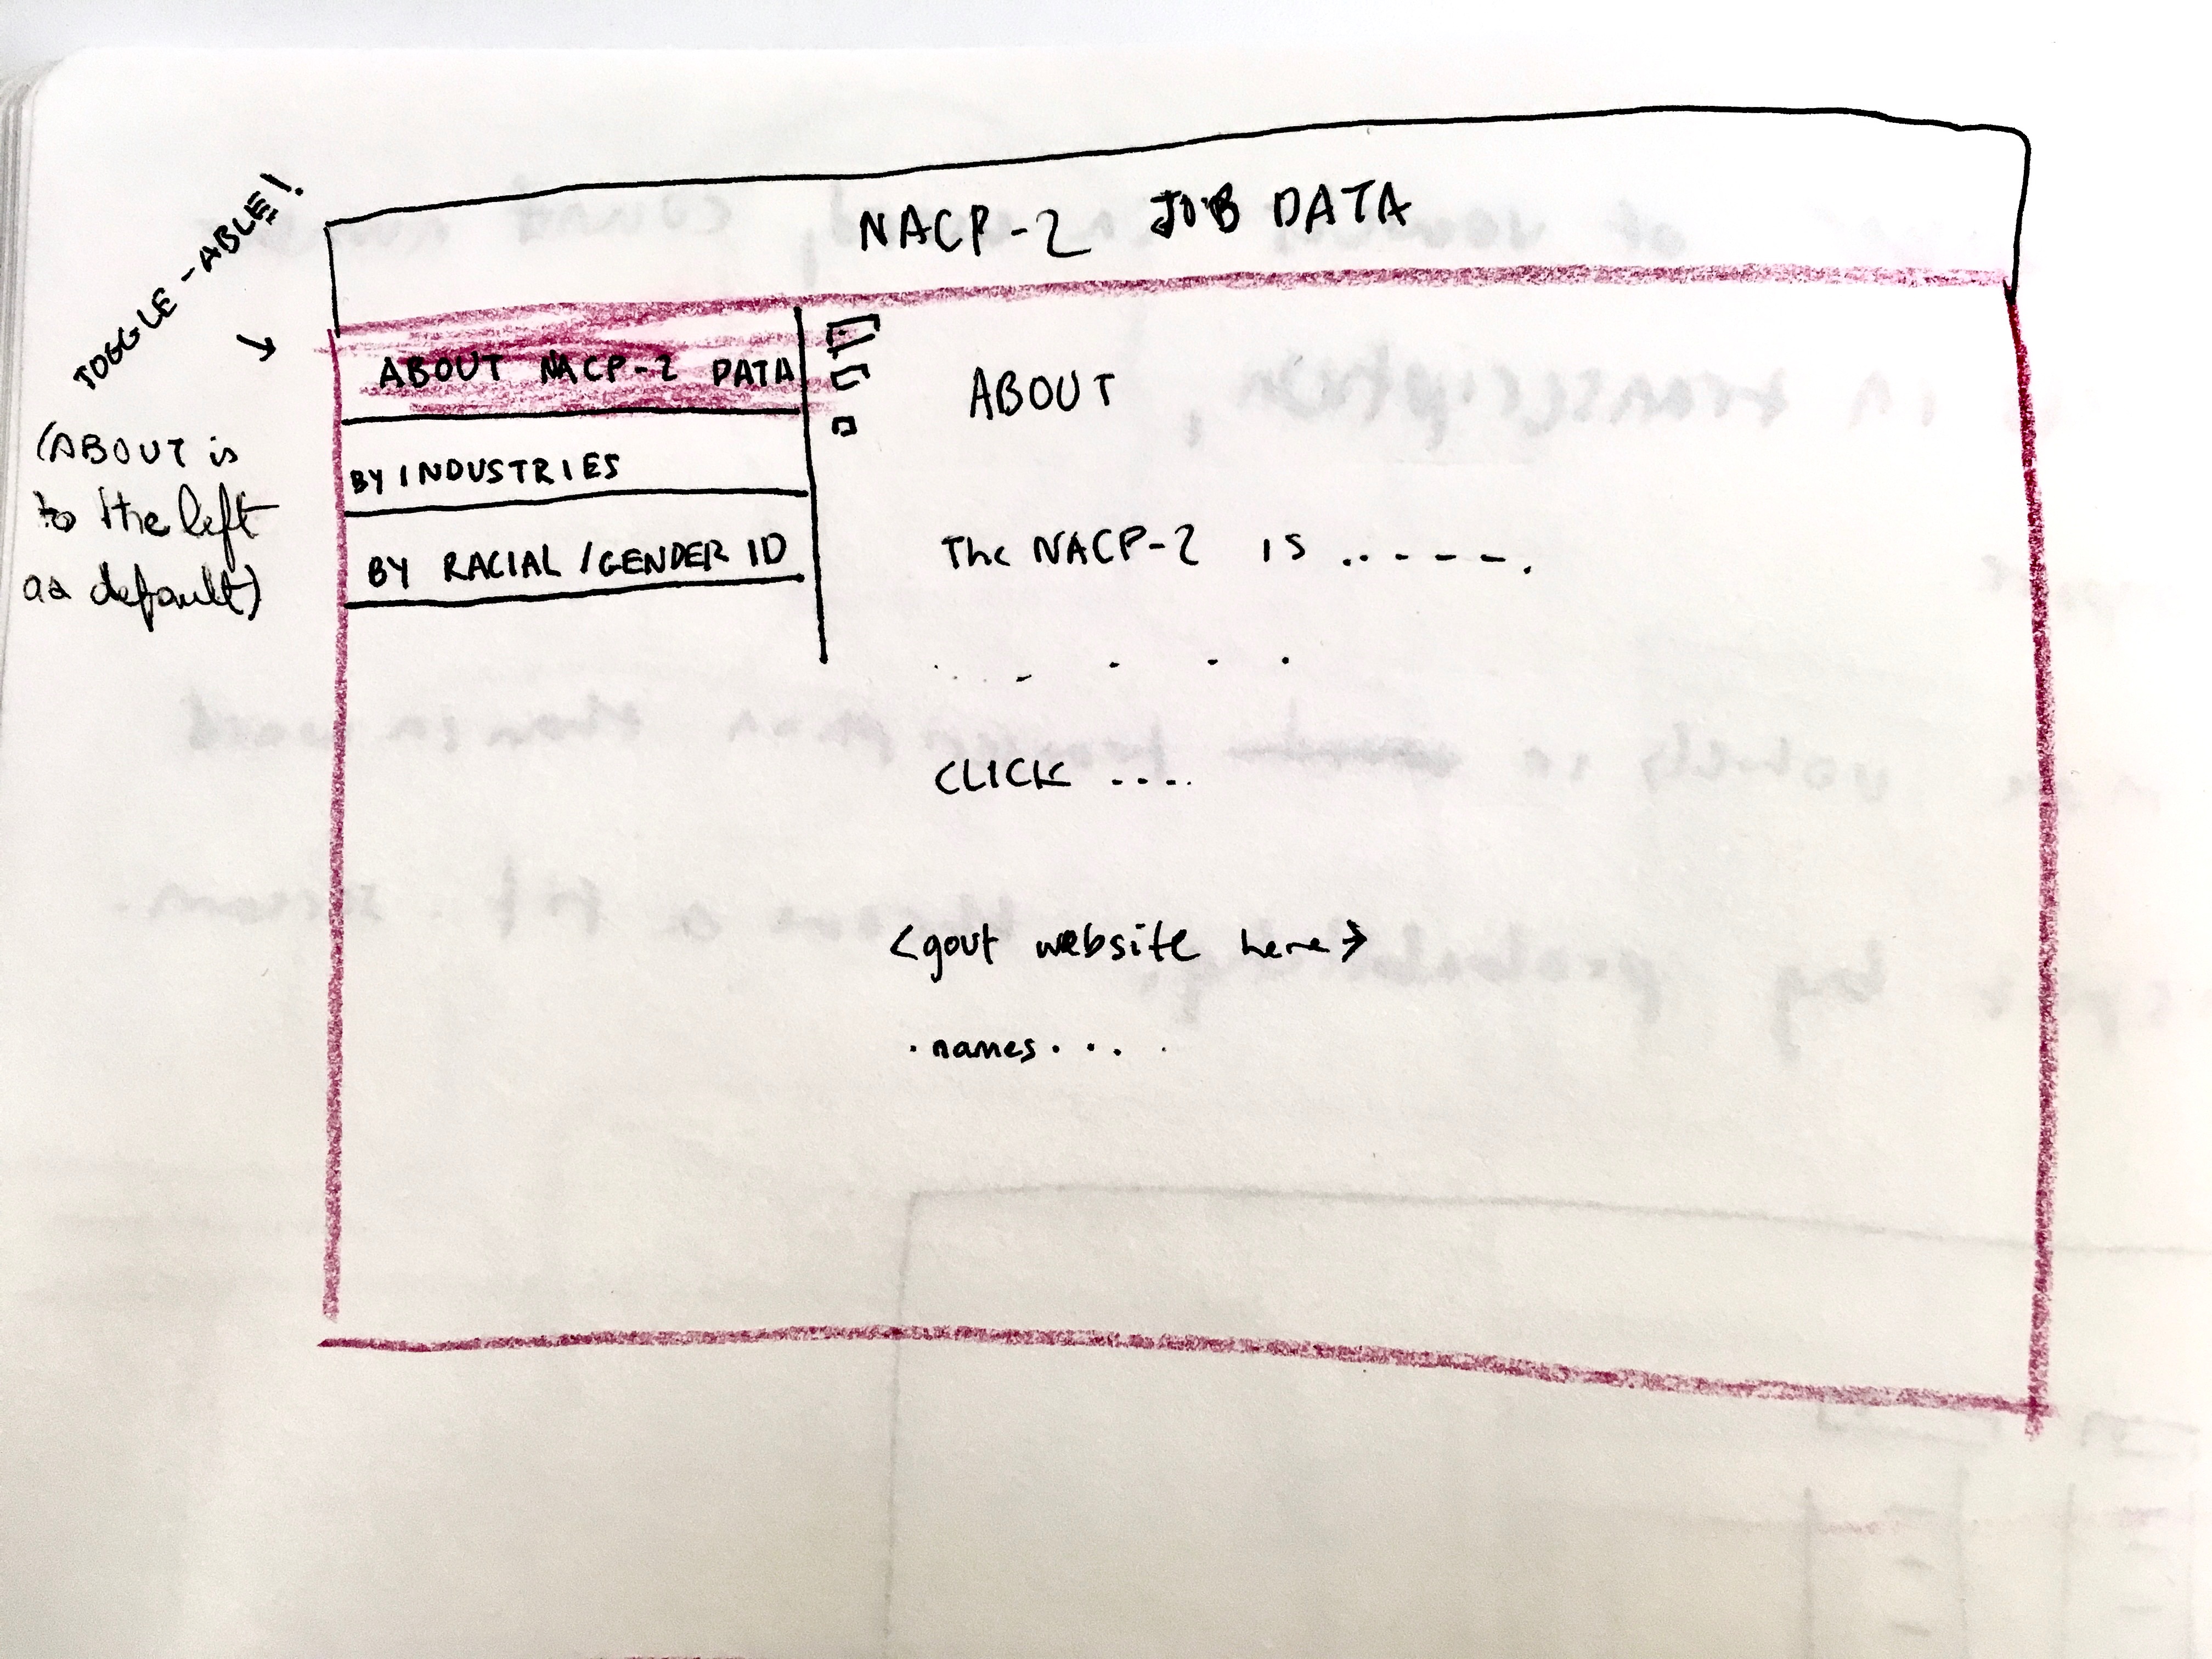 NACP-2 JOB DATA
TOGGLE-ABLE!
(ABOUT is
to the left
as default)
ABOUT NACP-2 DATA
BY INDUSTRIES
BY RACIAL / GENDER ID
ABOUT
The NACP-2 IS .. - - - .
CLICK ....
<govt website here>
. names . . . .